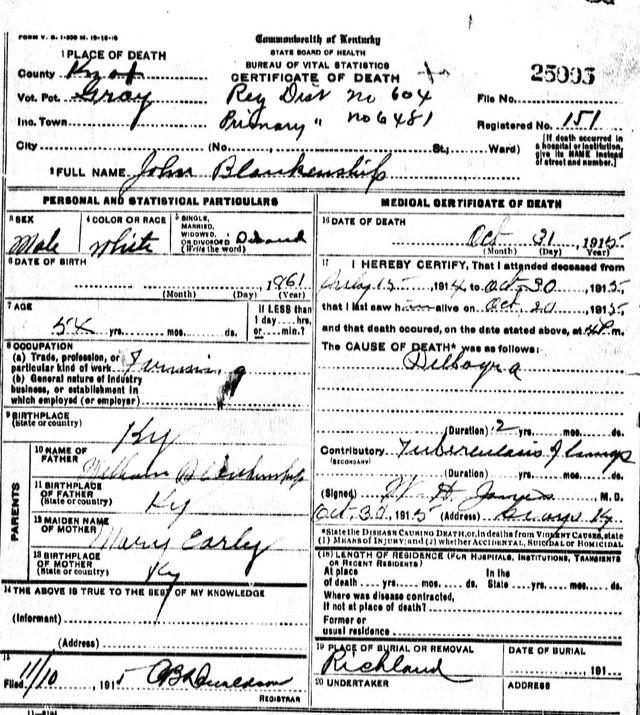 FORM V. S. 1-
Commonwealth of Kentucky
STATE BOARD OF HEALTH
BUREAU OF VITAL STATISTICS
CERTIFICATE OF DEATH
1 PLACE OF DEATH
County Knox
Vot. Pct. Gray
Inc. Town
City (No. St.; Ward)
Reg Dist no 604
Primary " no 6481
25995
File No.
Registered No. 151
[If death occurred in a hospital or institution, give its NAME instead of street and number.]
2 FULL NAME John Blankenship
PERSONAL AND STATISTICAL PARTICULARS
3 SEX
Male
4 COLOR OR RACE
White
5 SINGLE, MARRIED, WIDOWED, OR DIVORCED (Write the word)
6 DATE OF BIRTH
1861
(Month) (Day) (Year)
7 AGE
54 yrs. mos. ds.
If LESS than 1 day hrs. or min.?
8 OCCUPATION
(a) Trade, profession, or particular kind of work Farming
(b) General nature of industry business, or establishment in which employed (or employer)
9 BIRTHPLACE
(State or country)
Ky
PARENTS
10 NAME OF FATHER
William Blankenship
11 BIRTHPLACE OF FATHER
(State or country)
Ky
12 MAIDEN NAME OF MOTHER
Mary Early
13 BIRTHPLACE OF MOTHER
(State or country)
Ky
14 THE ABOVE IS TRUE TO THE BEST OF MY KNOWLEDGE
(Informant)
(Address)
15
Filed 11/10, 1915
REGISTRAR
MEDICAL CERTIFICATE OF DEATH
16 DATE OF DEATH
Oct 31, 1915
(Month) (Day) (Year)
17 I HEREBY CERTIFY, That I attended deceased from
15, 1914 to Oct 30 1915
that I last saw him alive on Oct 20 1915
and that death occured, on the date stated above, at 4P m.
The CAUSE OF DEATH* was as follows:
(Duration) 2 yrs. mos. ds.
Contributory Tuberculosis of Lungs
(SECONDARY)
(Duration) yrs. mos. ds.
(Signed) M. D.
Oct 30, 1915 (Address) Ky
*State the DISEASE CAUSING DEATH, or, in deaths from VIOLENT CAUSES, state (1) MEANS OF INJURY; and (2) whether ACCIDENTAL, SUICIDAL or HOMICIDAL
(18) LENGTH OF RESIDENCE (FOR HOSPITALS, INSTITUTIONS, TRANSIENTS OR RECENT RESIDENTS)
At place of death yrs. mos. ds. In the State yrs. mos. ds.
Where was disease contracted, If not at place of death?
Former or usual residence
19 PLACE OF BURIAL OR REMOVAL
Richland
DATE OF BURIAL
191
20 UNDERTAKER
ADDRESS